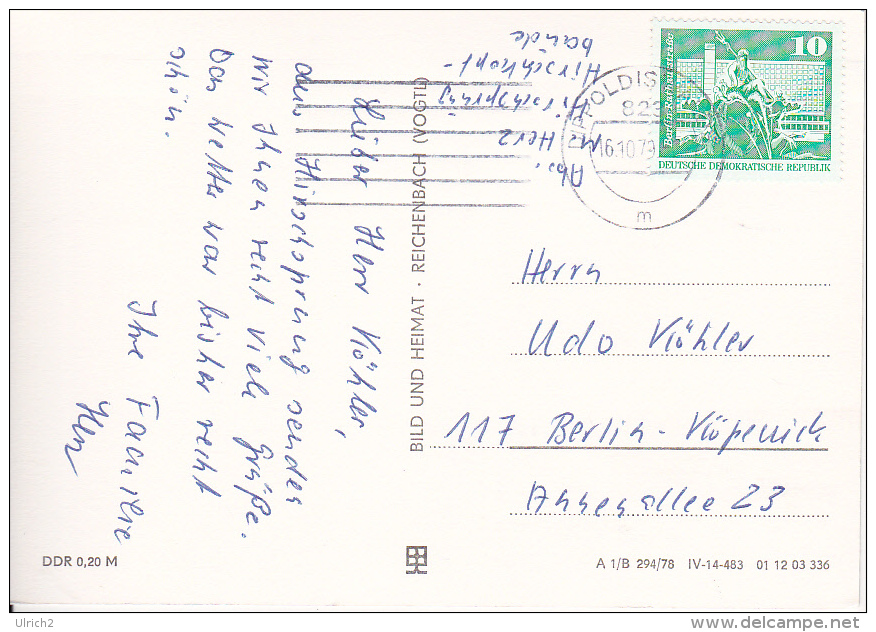 Lieber Herr Köhler,
aus Hirschsprung senden
wir Ihnen recht viele Grüße.
Das Wetter war bisher recht
schön.
Ihre Familie
Herz
Abs.
M. Herz
Hirschsprung
Hirschkopf-
baude
BILD UND HEIMAT · REICHENBACH (VOGTL)
10
Berlin
DEUTSCHE DEMOKRATISCHE REPUBLIK
823
16.10.79
m
Herrn
Udo Köhler
117 Berlin-Köpenick
Annenallee 23
DDR 0,20 M
A 1/B 294/78 IV-14-483 01 12 03 336
Ulrich2
delcampe.net